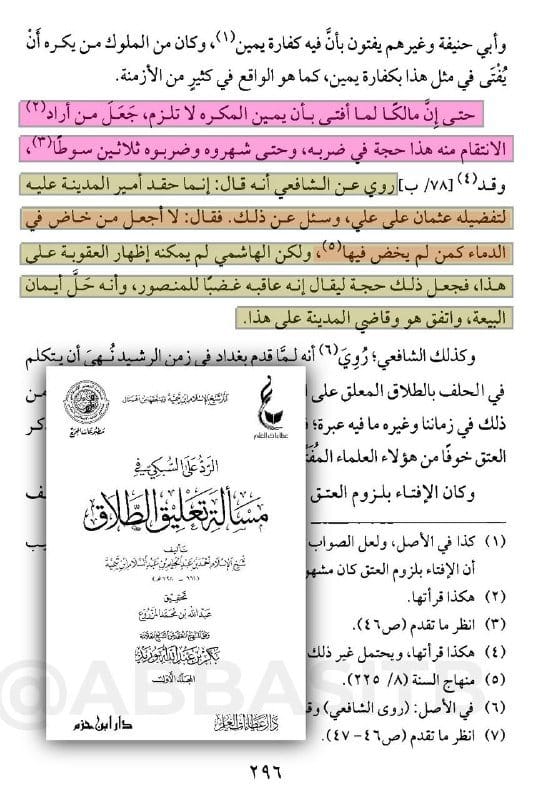 وأبي حنيفة وغيرهم يفتون بأنَّ فيه كفارة يمين(١)، وكان من الملوك من يكره أنْ
يُفْتَى في مثل هذا بكفارة يمين، كما هو الواقع في كثيرٍ من الأزمنة.
حتى إنَّ مالكًا لما أفتى بأن يمين المكره لا تلزم، جَعَلَ من أراد(٢)
الانتقام منه هذا حجة في ضربه، وحتى شهروه وضربوه ثلاثين سوطًا(٣)،
وقد(٤) [٧٨/ ب] روي عن الشافعي أنه قال: إنما حقد أمير المدينة عليه
لتفضيله عثمان على علي، وسئل عن ذلك. فقال: لا أجعل من خاض في
الدماء كمن لم يخض فيها(٥)، ولكن الهاشمي لم يمكنه إظهار العقوبة على
هذا، فجعل ذلك حجة ليقال إنه عاقبه غضبًا للمنصور، وأنه حَلَّ أيمان
البيعة، واتفق هو وقاضي المدينة على هذا.
وكذلك الشافعي؛ رُوِيَ(٦) أنه لمَّا قدم بغداد في زمن الرشيد نُهِيَ أن يتكلم
في الحلف بالطلاق المعلق على
من
ذلك في زماننا وغيره ما فيه عبرة؛
كر
العتق خوفًا من هؤلاء العلماء
وكان الإفتاء بلزوم العتق
ف
عطاءات العلم
الرد على السبكي في
مسألة تعليق الطلاق
تأليف
شيخ الإسلام أحمد بن عبد الحليم بن عبد السلام ابن تيمية
(٦٦١ - ٧٢٨ هـ)
تحقيق
عبد الله بن محمد المزروع
وفق المنهج المعتمد من الشيخ العلامة
بكر بن عبد الله أبو زيد
المجلد الأول
دار عطاءات العلم
دار ابن حزم
(١) كذا في الأصل، ولعل الصواب
يب
أن الإفتاء بلزوم العتق كان مشهو
(٢) هكذا قرأتها.
(٣) انظر ما تقدم (ص٤٦).
(٤) هكذا قرأتها، ويحتمل غير ذلك
(٥) منهاج السنة (٨/ ٢٢٥).
(٦) في الأصل: (روى الشافعي) وق
(٧) انظر ما تقدم (ص٤٦- ٤٧).
@ABBASITB
٢٩٦